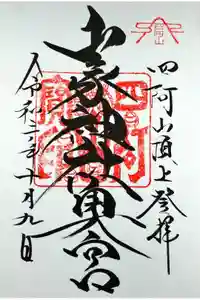 四阿山頂上登拝
山家神社奥宮
令和二年十月九日